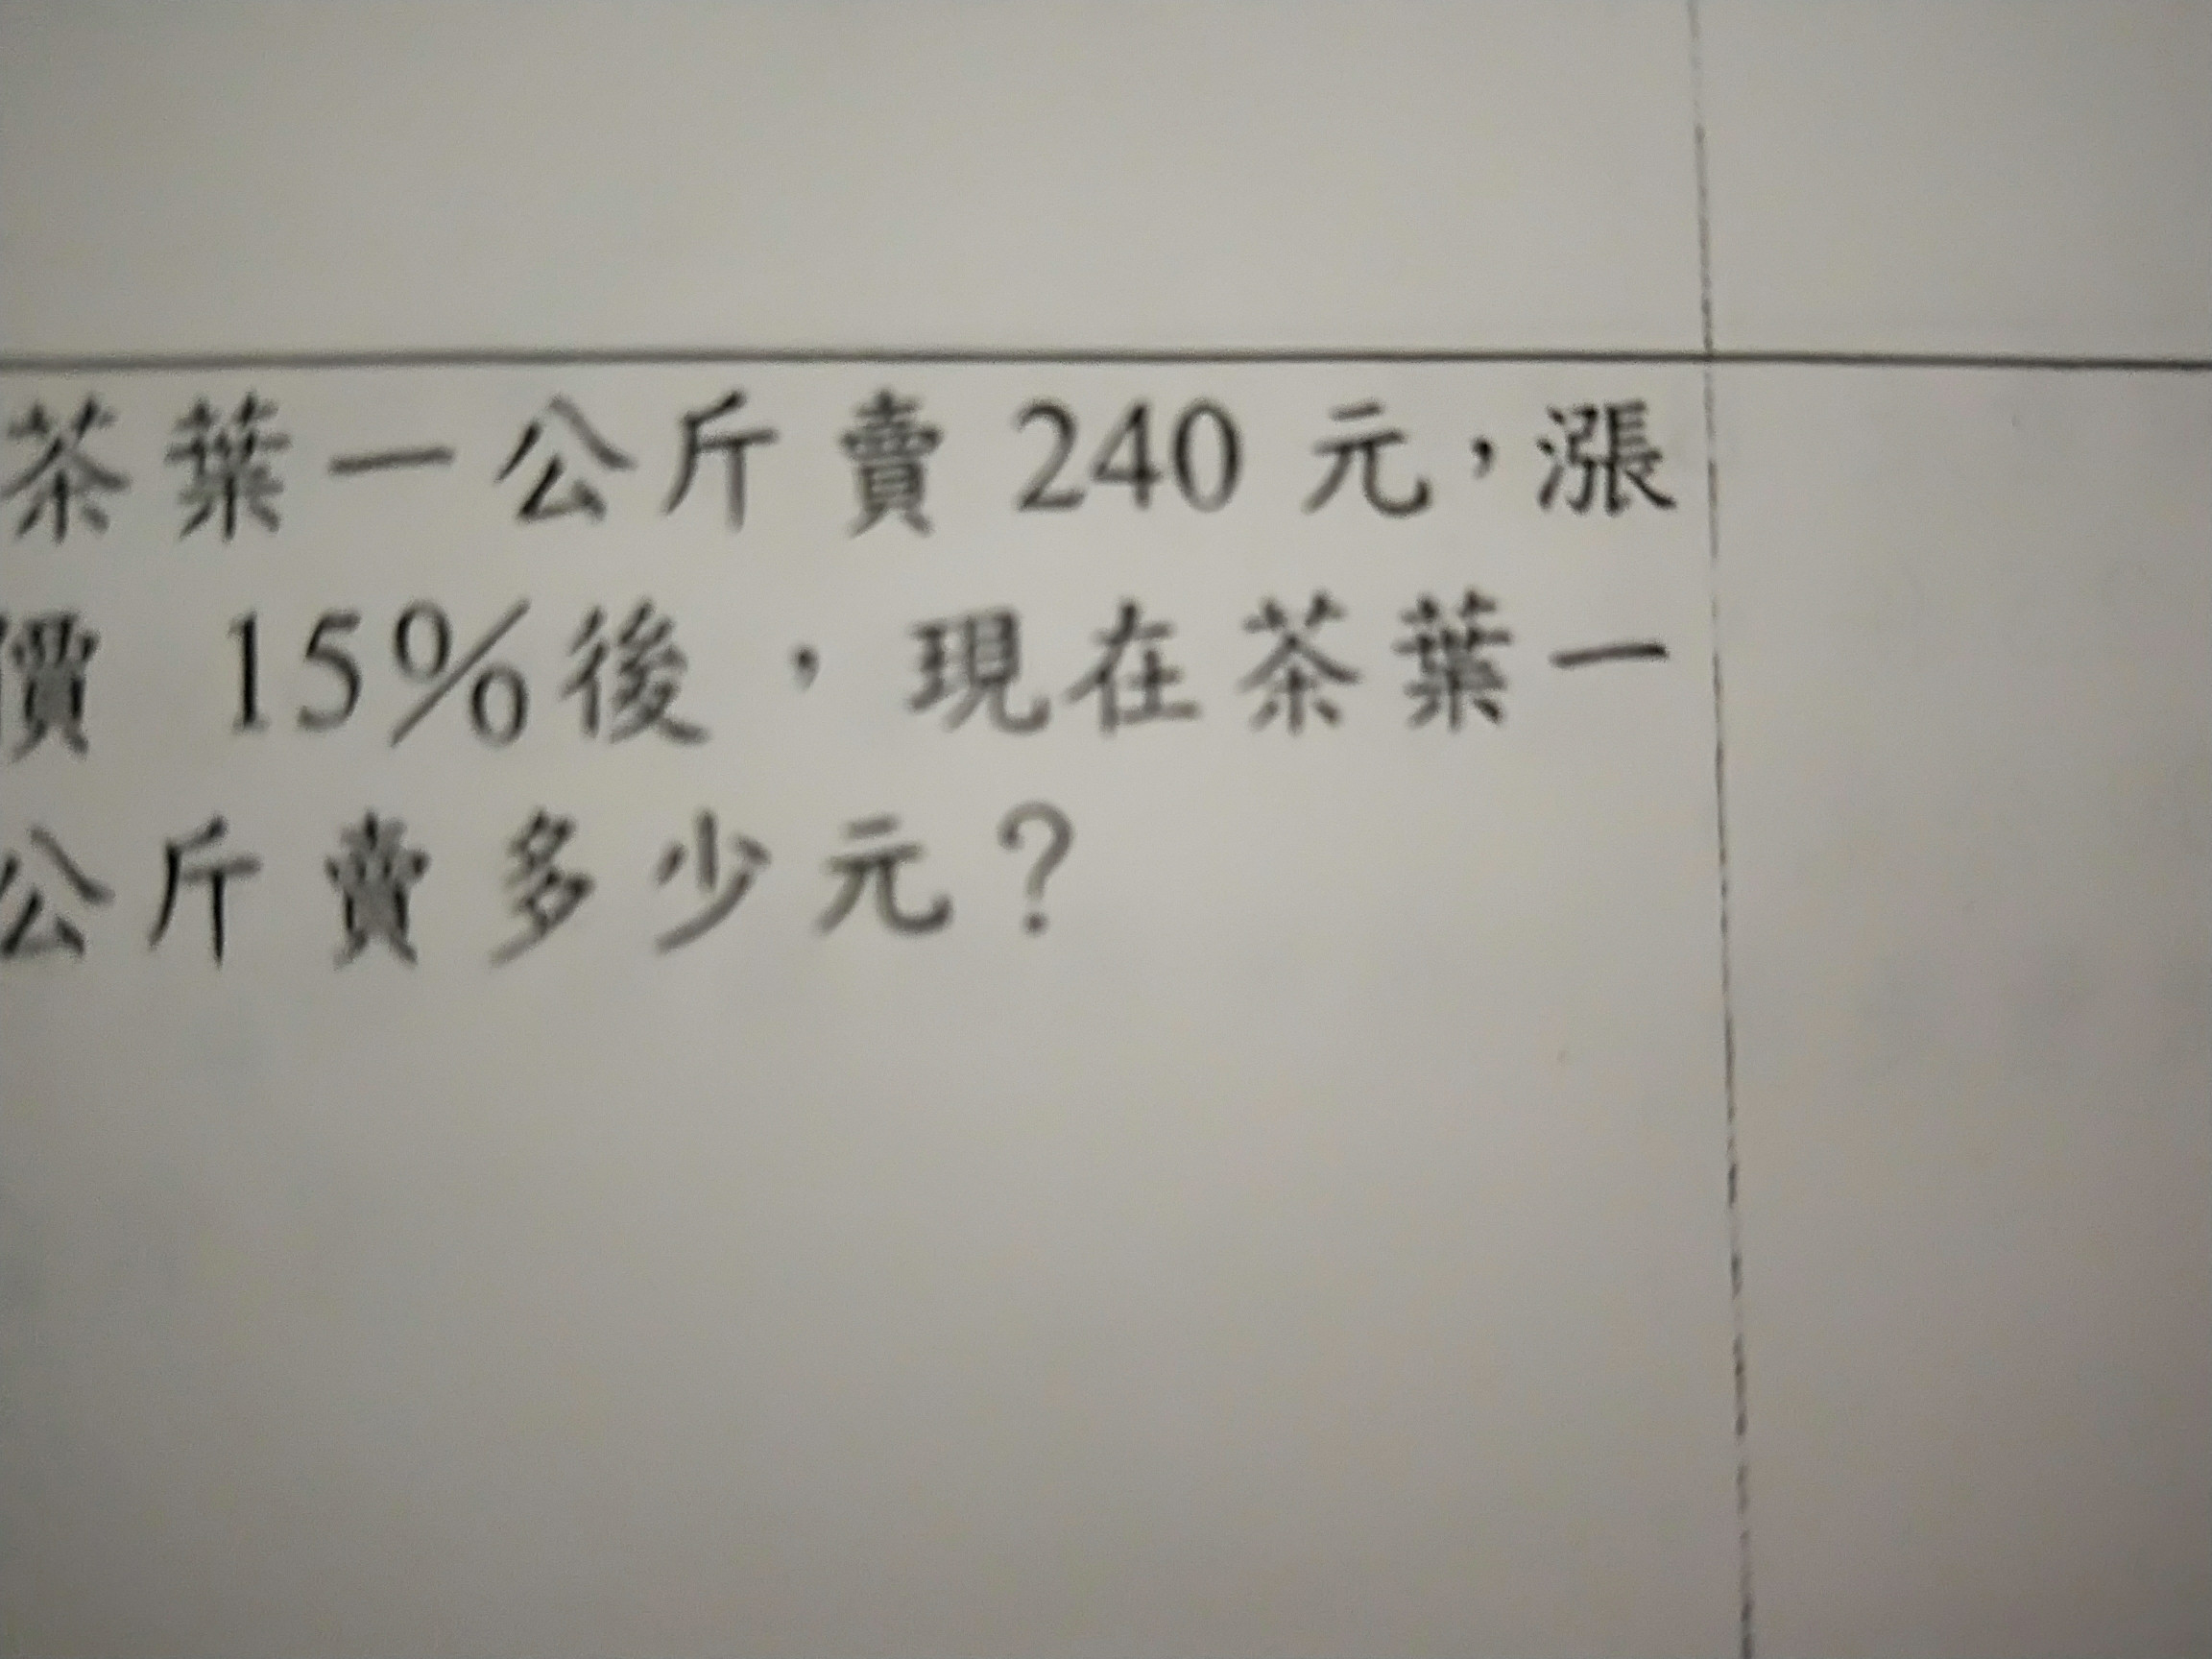 茶葉一公斤賣 240 元，漲
價 15%後，現在茶葉一
公斤賣多少元？